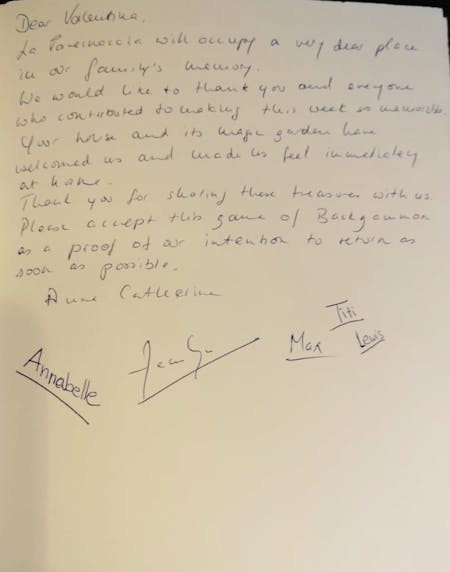 Dear Valentina,
La Tavernaccia will occupy a very dear place
in our family's memory.
We would like to thank you and everyone
who contributed to making this week so memorable.
Your house and its magic garden have
welcomed us and made us feel immediately
at home.
Thank you for sharing these treasures with us.
Please accept this game of Backgammon
as a proof of our intention to return as
soon as possible.
Anne Catherine
Titi
Annabelle
Max Lewis